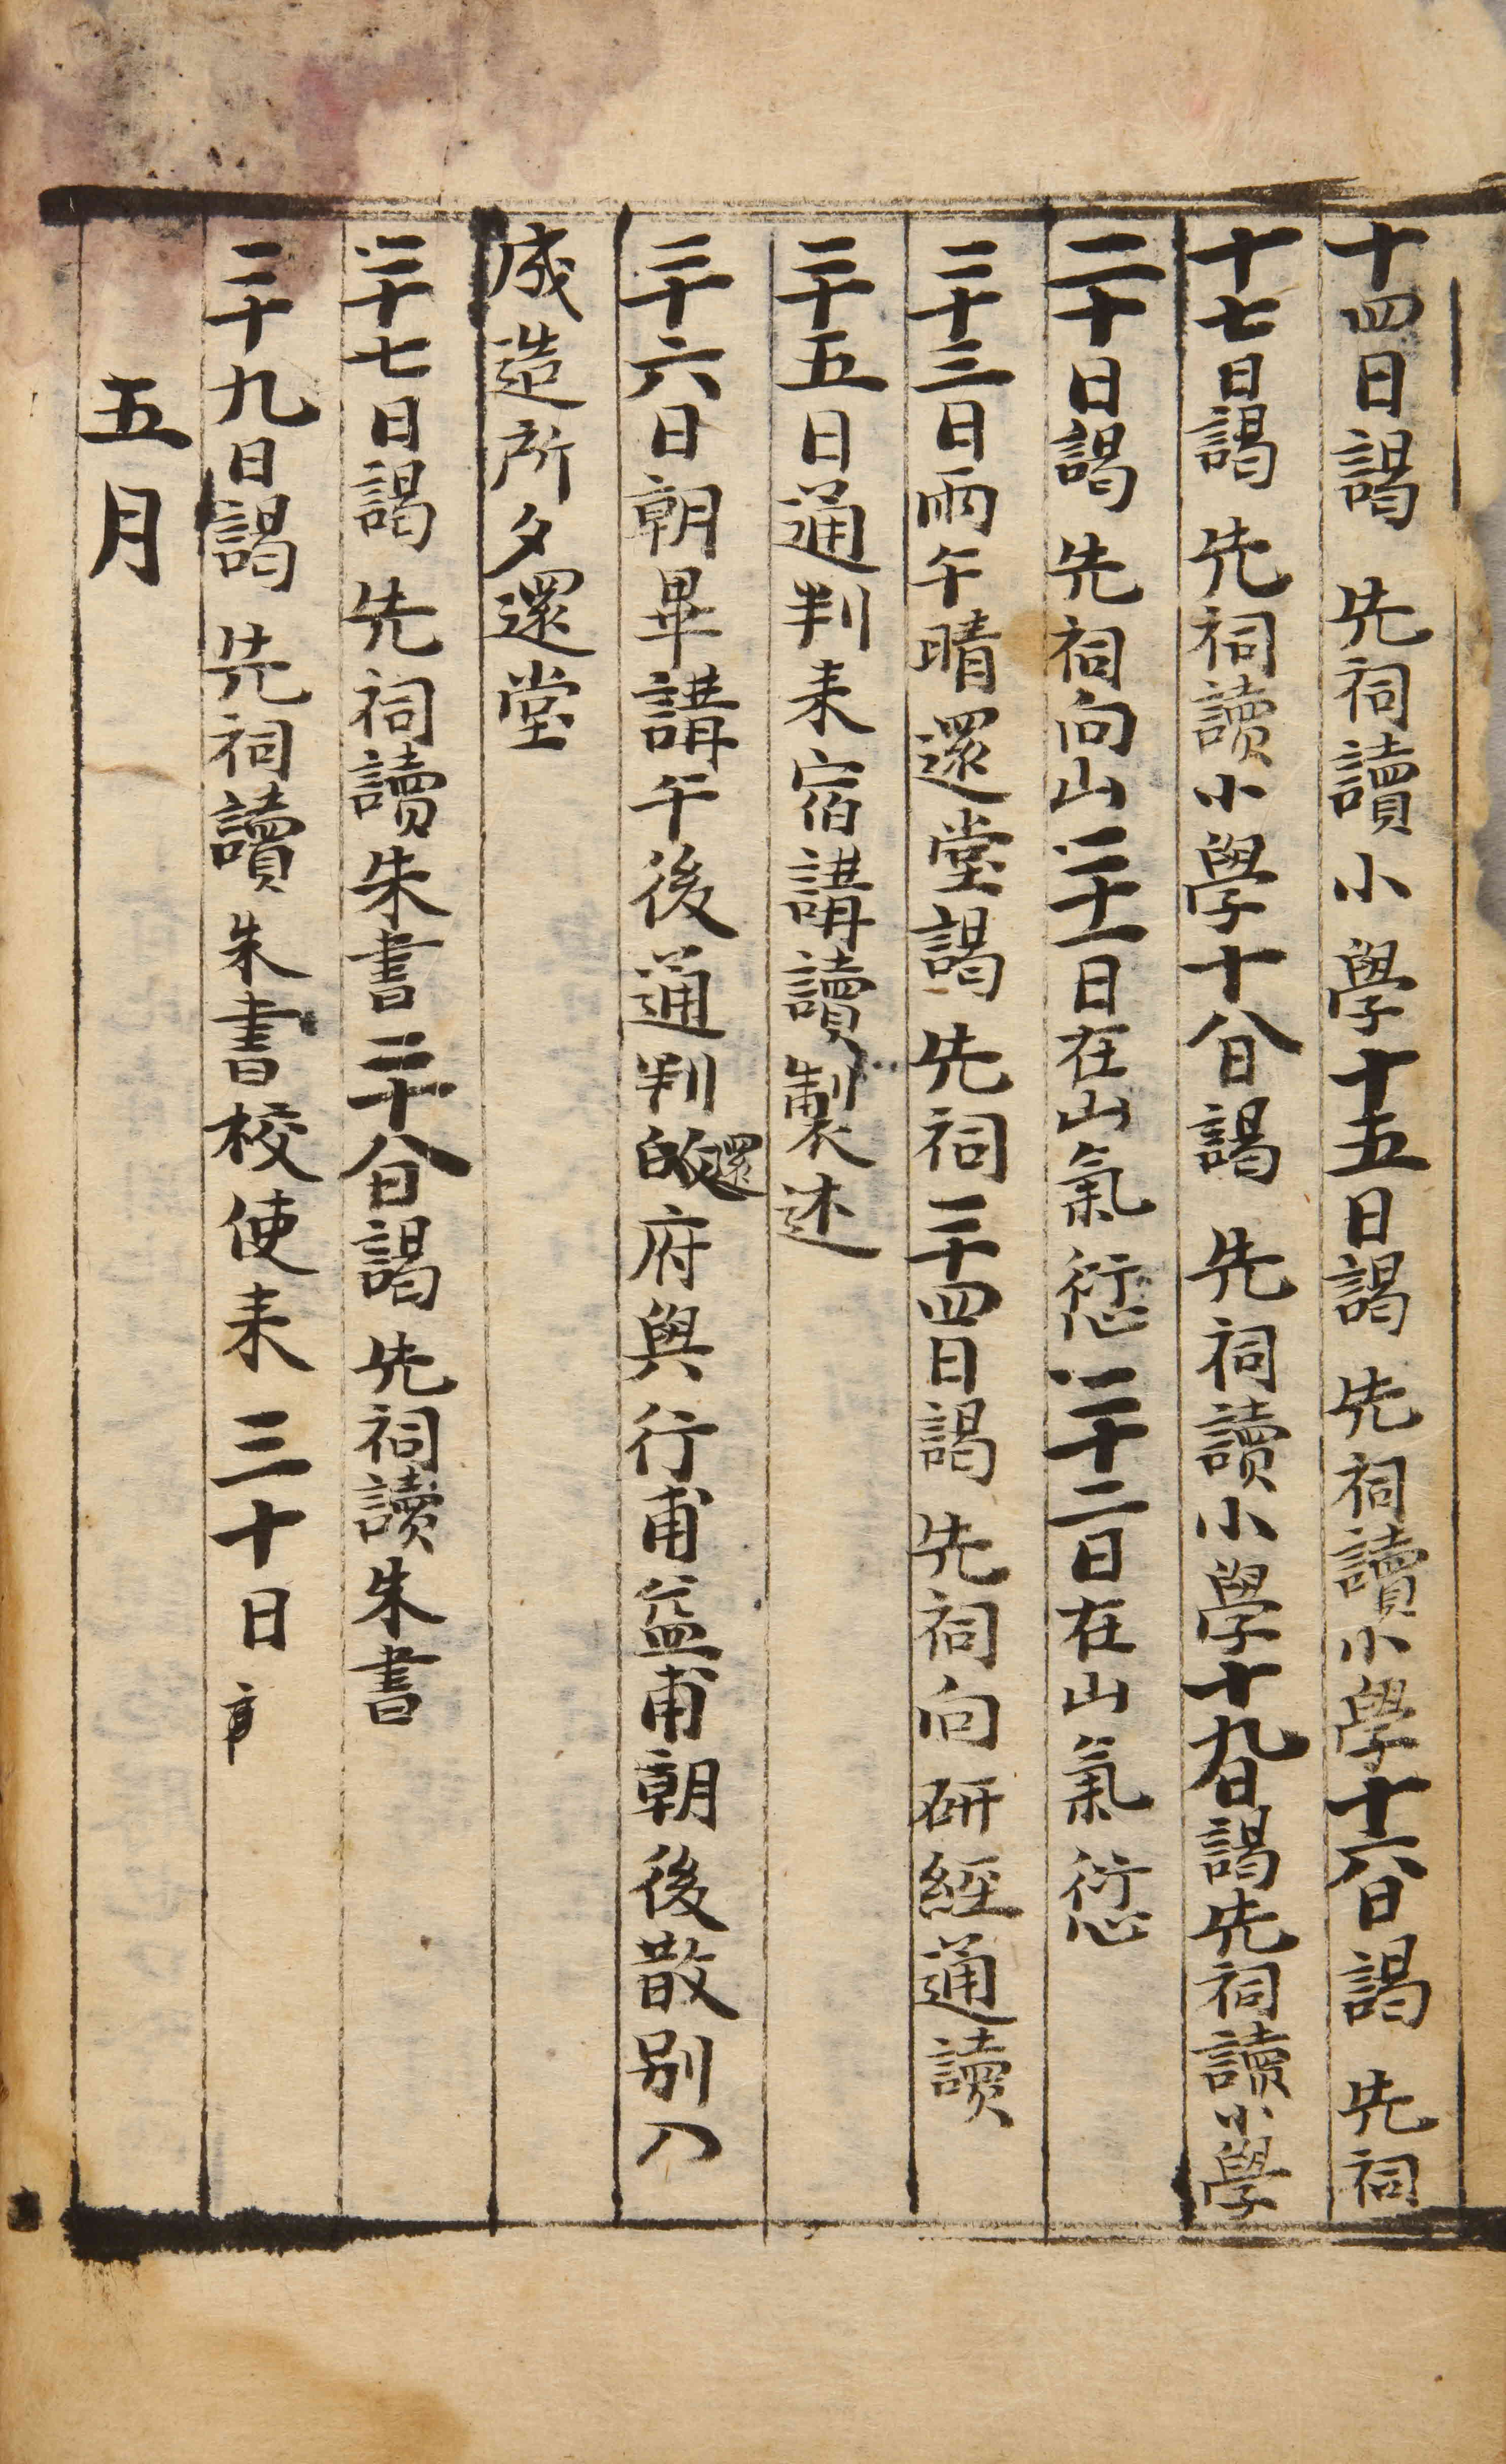 十四日謁 先祠讀小學十五日謁 先祠讀小學十六日謁 先祠
十七日謁 先祠讀小學十八日謁 先祠讀小學十九日謁先祠讀小學
二十日謁 先祠向山二十一日在山氣愆二十二日在山氣愆
二十三日雨午晴還堂謁 先祠二十四日謁 先祠向研經通讀
二十五日通判来宿講讀製述
二十六日朝畢講午後通判還府與行甫益甫朝後散別入
成造所夕還堂
二十七日謁 先祠讀朱書二十八日謁 先祠讀朱書
二十九日謁 先祠讀朱書校使来 三十日
五月